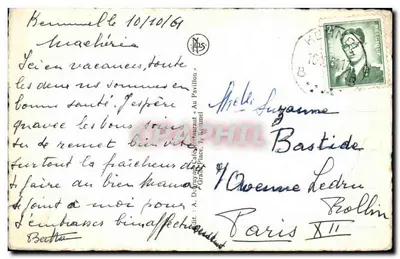 Kemmel le 10/10/61
Ma chérie
Ici en vacances, toute
les deux ns sommes en
bonne santé. J'espère
qu'avec les bons soins
tu se remet bien vite
surtout la fraîcheur doit
faire du bien Mama
se joint à moi pour
t'embrasser bien affectueusement
Bertha
Nels
Au Pavillon
Grand'Place, Kemmel
Melle Suzanne
Bastide
Avenue Ledru
Rollin
Paris XII